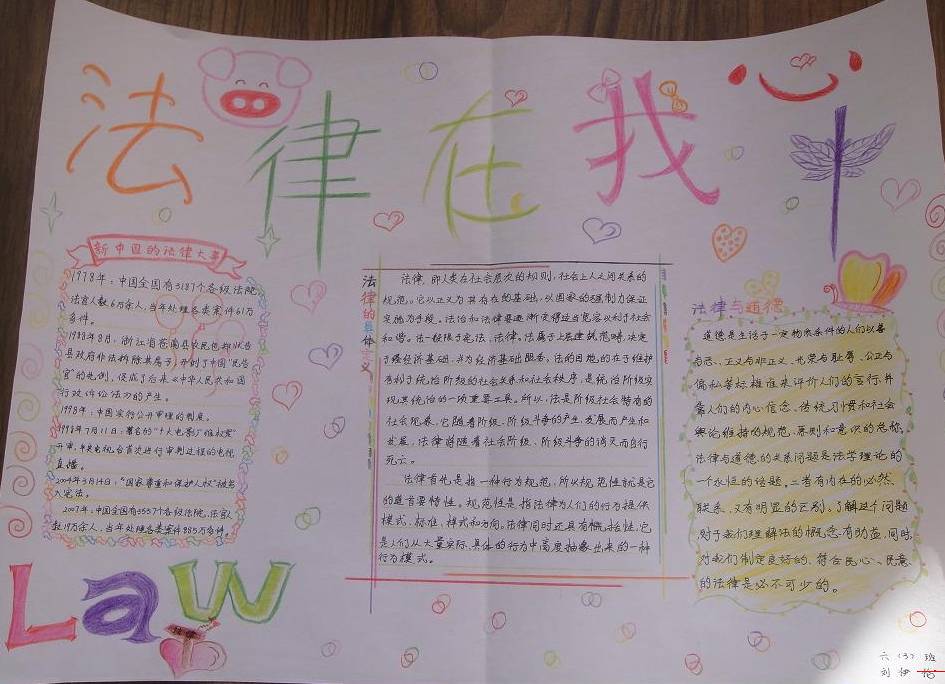 法律在我
新中国的法律大事
1978年：中国全国有3187个各级法院
法官人数6万余人，当年处理各类案件61万
条件。
1988年8月，浙江省苍南县农民包郑状告
县政府非法拆除其房子，开创了中国“民告
官”的先例，促成了后来《中华人民共和国
行政诉讼法》的产生。
1998年：中国实行公开审理的制度。
1998年7月11日，著名的“十大电影厂维权案”
开审，中央电视台首次进行审判过程的电视
直播。
2004年3月14日，“国家尊重和保护人权”被写
入宪法。
2007年，中国全国有3557个各级法院，法官人
数19万余人，当年处理各类案件885万余件。
Law
法律的具体定义
法律，即人类在社会层次的规则，社会上人与人之间关系的
规范。它以正义为其存在的基础，以国家的强制力保证
实施为手段。
和谐。法一般限于宪法、法律，法属于上层建筑范畴，决定
于经济基础，并为经济基础服务，法的目的，在于维护
有利于统治阶级的社会关系和社会秩序，是统治阶级实
现其统治的一项重要工具。所以，法是阶级社会特有的
社会现象，它随着阶级、阶级斗争的产生、发展而产生和
发展，法律将随着社会阶级、阶级斗争的消灭而自行
死亡。
法律首先是指一种行为规范，所以规范性就是它
的首要特性。规范性是指法律为人们的行为提供
模式，标准，样式和方向。法律同时还具有概括性，它
是人们从大量实际、具体的行为中高度抽象出来的一种
行为模式。
法律与道德
道德是生活于一定物质条件的人们以善
与恶、正义与非正义、光荣与耻辱、公正与
偏私等标准来评价人们的言行，并
靠人们的内心信念、传统习惯和社会
舆论维持的规范、原则和意识的总称。
法律与道德的关系问题是法学理论的
一个永恒的话题。二者有内在的必然
联系，又有明显的区别，了解这个问题
对于我们理解法的概念有助益，同时
对我们制定良好的，符合民心、民意
的法律是必不可少的。
六（3）班
刘伊